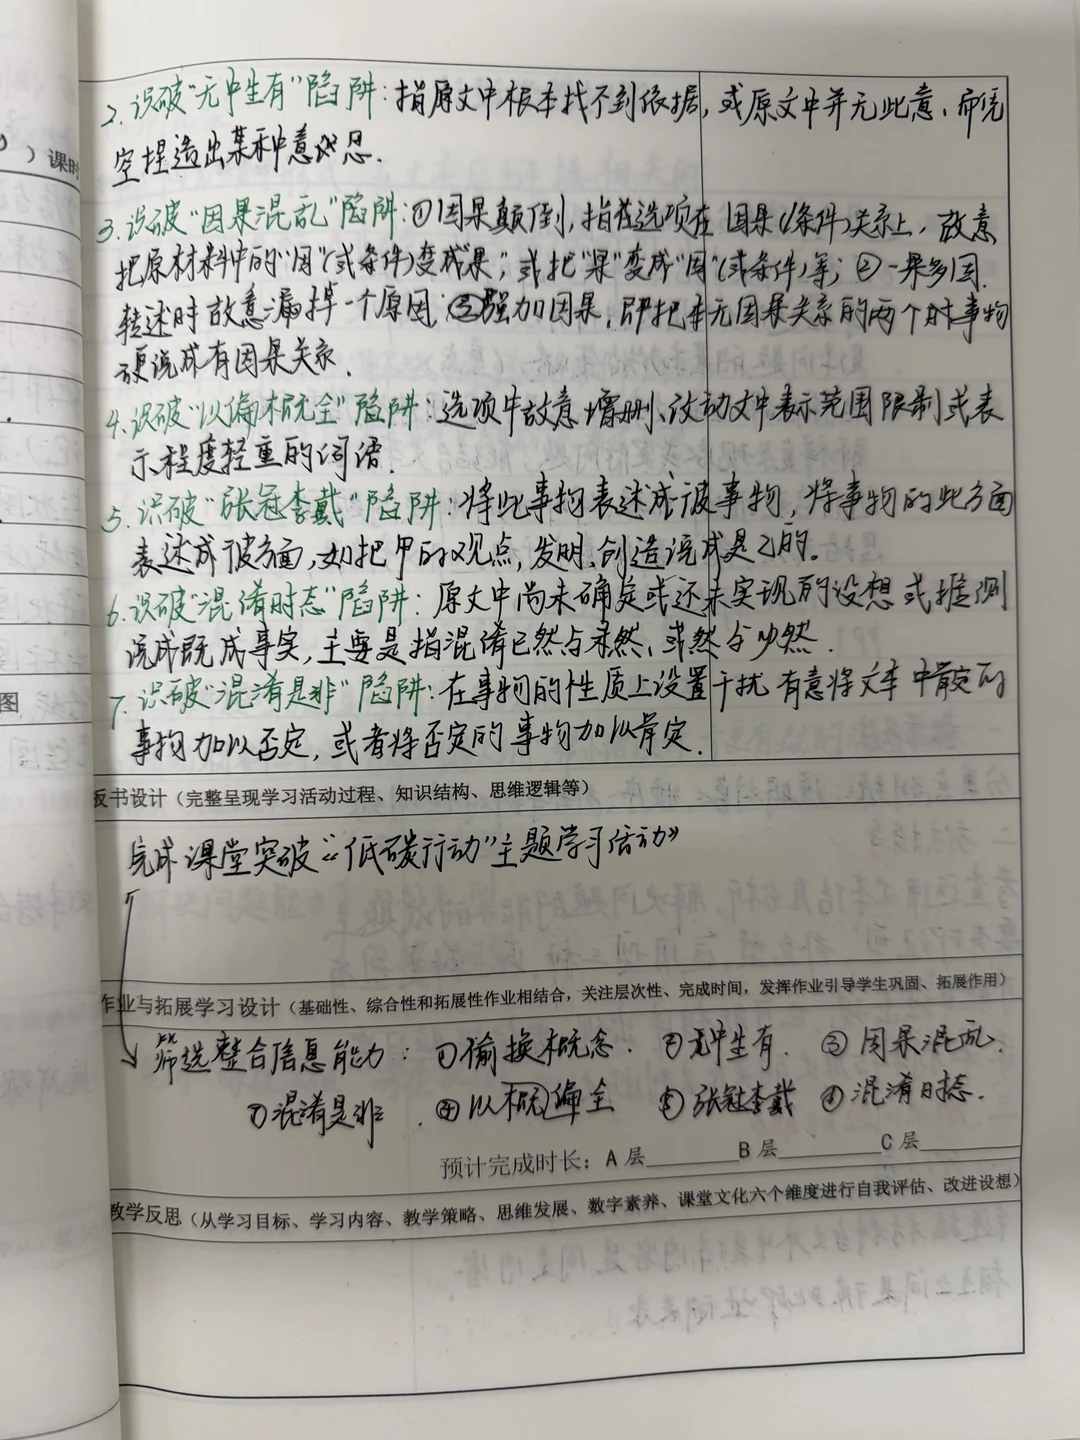 ）课时
2.识破"无中生有"陷阱：指原文中根本找不到依据，或原文中并无此意，而凭
空捏造出某种意思.
3.识破"因果混乱"陷阱：①因果颠倒，指在选项在因果(条件)关系上，故意
把原材料中的"因"(或条件)变成"果"，或把"果"变成"因"(或条件)等；②一果多因.
转述时故意漏掉一个原因；③强加因果，即把本无因果关系的两个事物
硬说成有因果关系.
4.识破"以偏概全"陷阱：选项中故意增删、改动文中表示范围限制或表
示程度轻重的词语.
5.识破"张冠李戴"陷阱：将此事物表述成彼事物，将事物的此方面
表述成彼方面，如把甲的观点，发明、创造说成是乙的。
6.识破"混淆时态"陷阱：原文中尚未确定或还未实现的设想或推测
说成既成事实，主要是指混淆已然与未然，或然与必然.
7.识破"混淆是非"陷阱：在事物的性质上设置干扰有意将文章中肯定的
图
事物加以否定，或者将否定的事物加以肯定.
板书设计（完整呈现学习活动过程、知识结构、思维逻辑等）
完成课堂突破《"低碳行动"主题学习活动》
作业与拓展学习设计（基础性、综合性和拓展性作业相结合，关注层次性、完成时间，发挥作业引导学生巩固、拓展作用）
筛选整合信息能力：①偷换概念.②无中生有.③因果混乱.
⑦混淆是非.④以概偏全⑤张冠李戴⑥混淆时态.
预计完成时长：A层________B层________C层________
教学反思（从学习目标、学习内容、教学策略、思维发展、数字素养、课堂文化六个维度进行自我评估、改进设想）